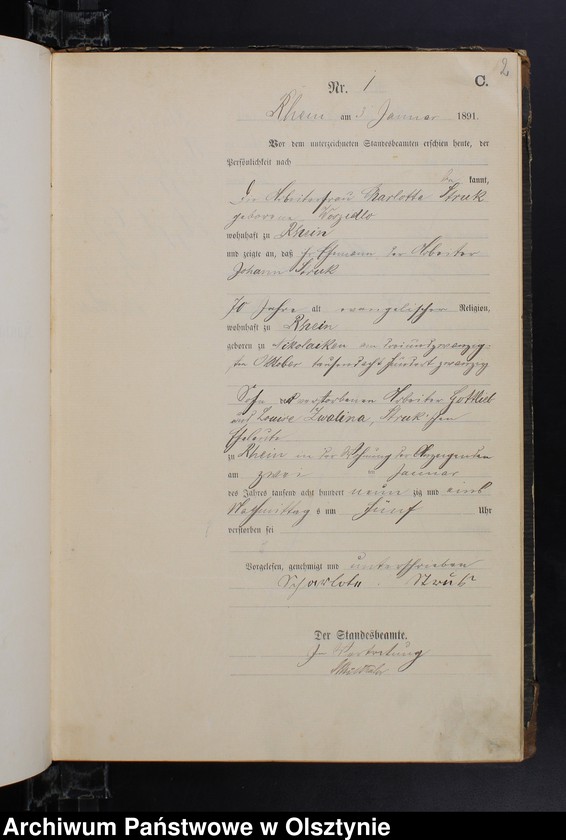 2
Nr. 1 C.
Rhein am 3 Januar 1891.
Vor dem unterzeichneten Standesbeamten erschien heute, der
Persönlichkeit nach
be kannt,
die Arbeiterfrau Charlotte Struk
geborene
wohnhaft zu Rhein
und zeigte an, daß ihr Ehemann der Arbeiter
Johann Struk
70 Jahre alt evangelischer Religion,
wohnhaft zu Rhein
geboren zu Nikolaiken am dreiundzwanzig-
ten Oktober tausend acht hundert zwanzig
Sohn der verstorbenen Arbeiter Gottlieb
und Louise Struk'schen
Eheleute
zu Rhein in der Wohnung der Anzeigenden
am zwei ten Januar
des Jahres tausend acht hundert neun zig und eins
Nachmittags um fünf Uhr
verstorben sei
Vorgelesen, genehmigt und unterschrieben
Scharlote Struk
Der Standesbeamte.
In Vertretung
Archiwum Państwowe w Olsztynie